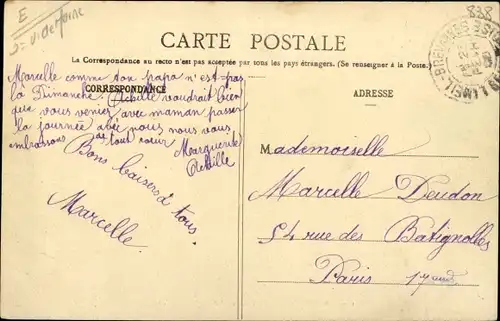 E
838
CARTE POSTALE
La Correspondance au recto n'est pas acceptée par tous les pays étrangers. (Se renseigner à la Poste.)
CORRESPONDANCE
Marcelle comme ton papa n'est pas
là Dimanche. Achille voudrait bien
que vous veniez avec maman passer
la journée avec nous nous vous
embrassons de tout cœur
Marguerite
Achille
Bons baisers à tous
Marcelle
ADRESSE
Mademoiselle
Marcelle Deudon
54 rue des Batignolles
Paris 17